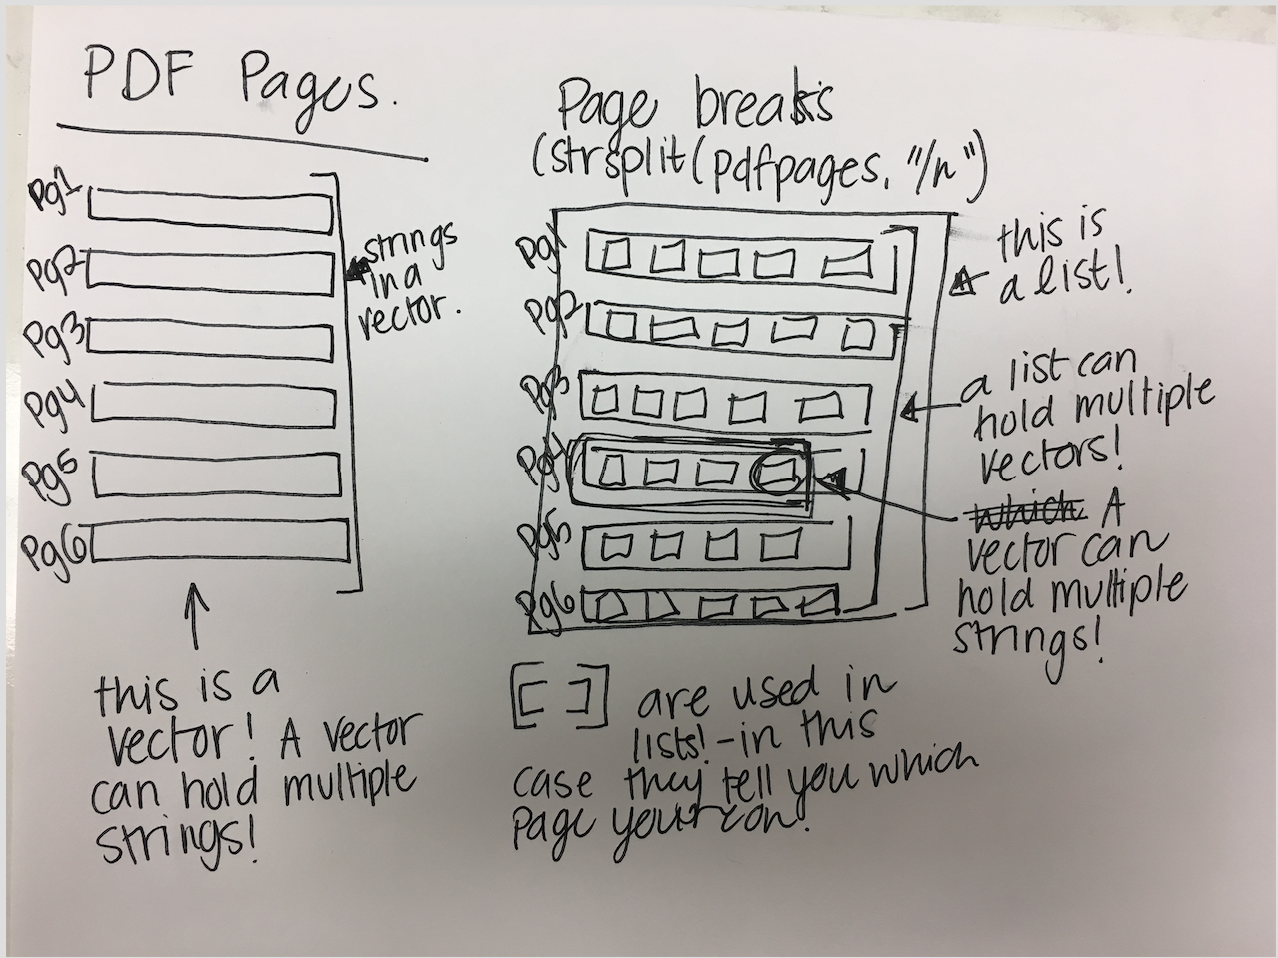 PDF Pages.
Pg1
Pg2
Pg3
Pg4
Pg5
Pg6
strings
in a
vector.
this is a
vector! A vector
can hold multiple
strings!
Page breaks
(strsplit(pdfpages, "/n")
Pg1
Pg2
Pg3
Pg4
Pg5
Pg6
this is
a list!
a list can
hold multiple
vectors!
which A
vector can
hold multiple
strings!
[[ ]] are used in
lists! - in this
case they tell you which
page your on!